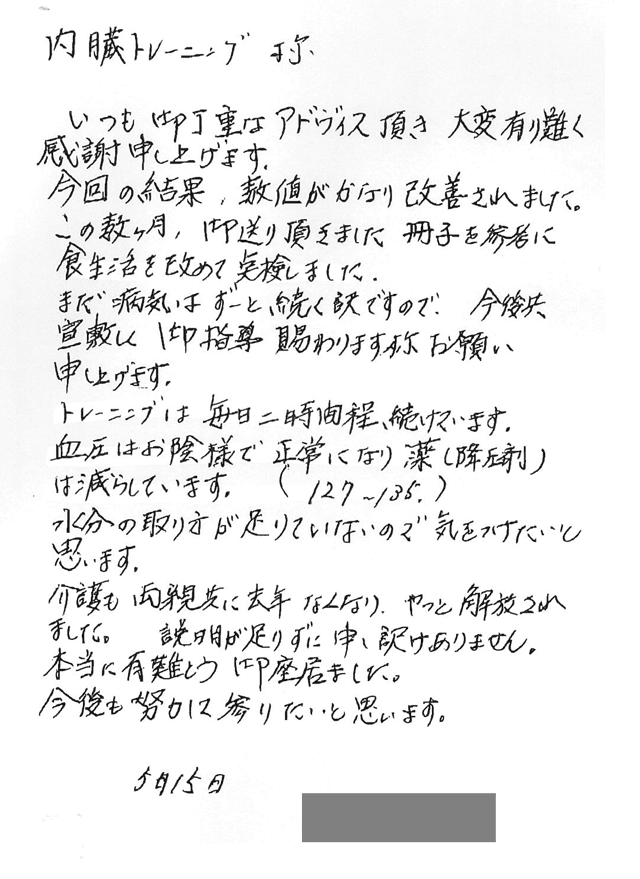 内臓トレーニング 様
いつも御丁重なアドヴィス頂き 大変有り難く
感謝申し上げます。
今回の結果、数値がかなり改善されました。
この数ヶ月、御送り頂きました 冊子を参考に
食生活を改めて実検しました.
まだ病気は ずーと続く訳ですので、 今後共
宜敷しく御指導 賜わります様お願い
申し上げます。
トレーニングは 毎日二時間程、続けています.
血圧はお陰様で 正常になり薬(降圧剤)
は減らしています。 (127~135.)
水分の取り方が足りていないので 気をつけたいと
思います.
介護も両親共に去年 なくなり、やっと解放され
ました。 説明が足りずに申し訳けありません。
本当に有難とう御座居ました。
今後も努力して参りたいと思います。
5月15日